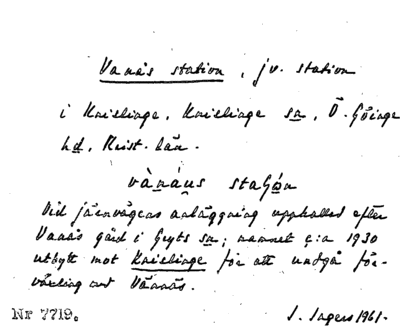 Vanås station, jv. station
i Knislinge, Knislinge sn, Ö. Göinge
hd, Krist. län.
stašọn
Vid järnvägens anläggning uppkallad efter
Vanås gård i Gryts sn; namnet c:a 1930
utbytt mot Knislinge för att undgå för-
växling med Vännäs.
Nr 7719.
I. Ingers 1961.